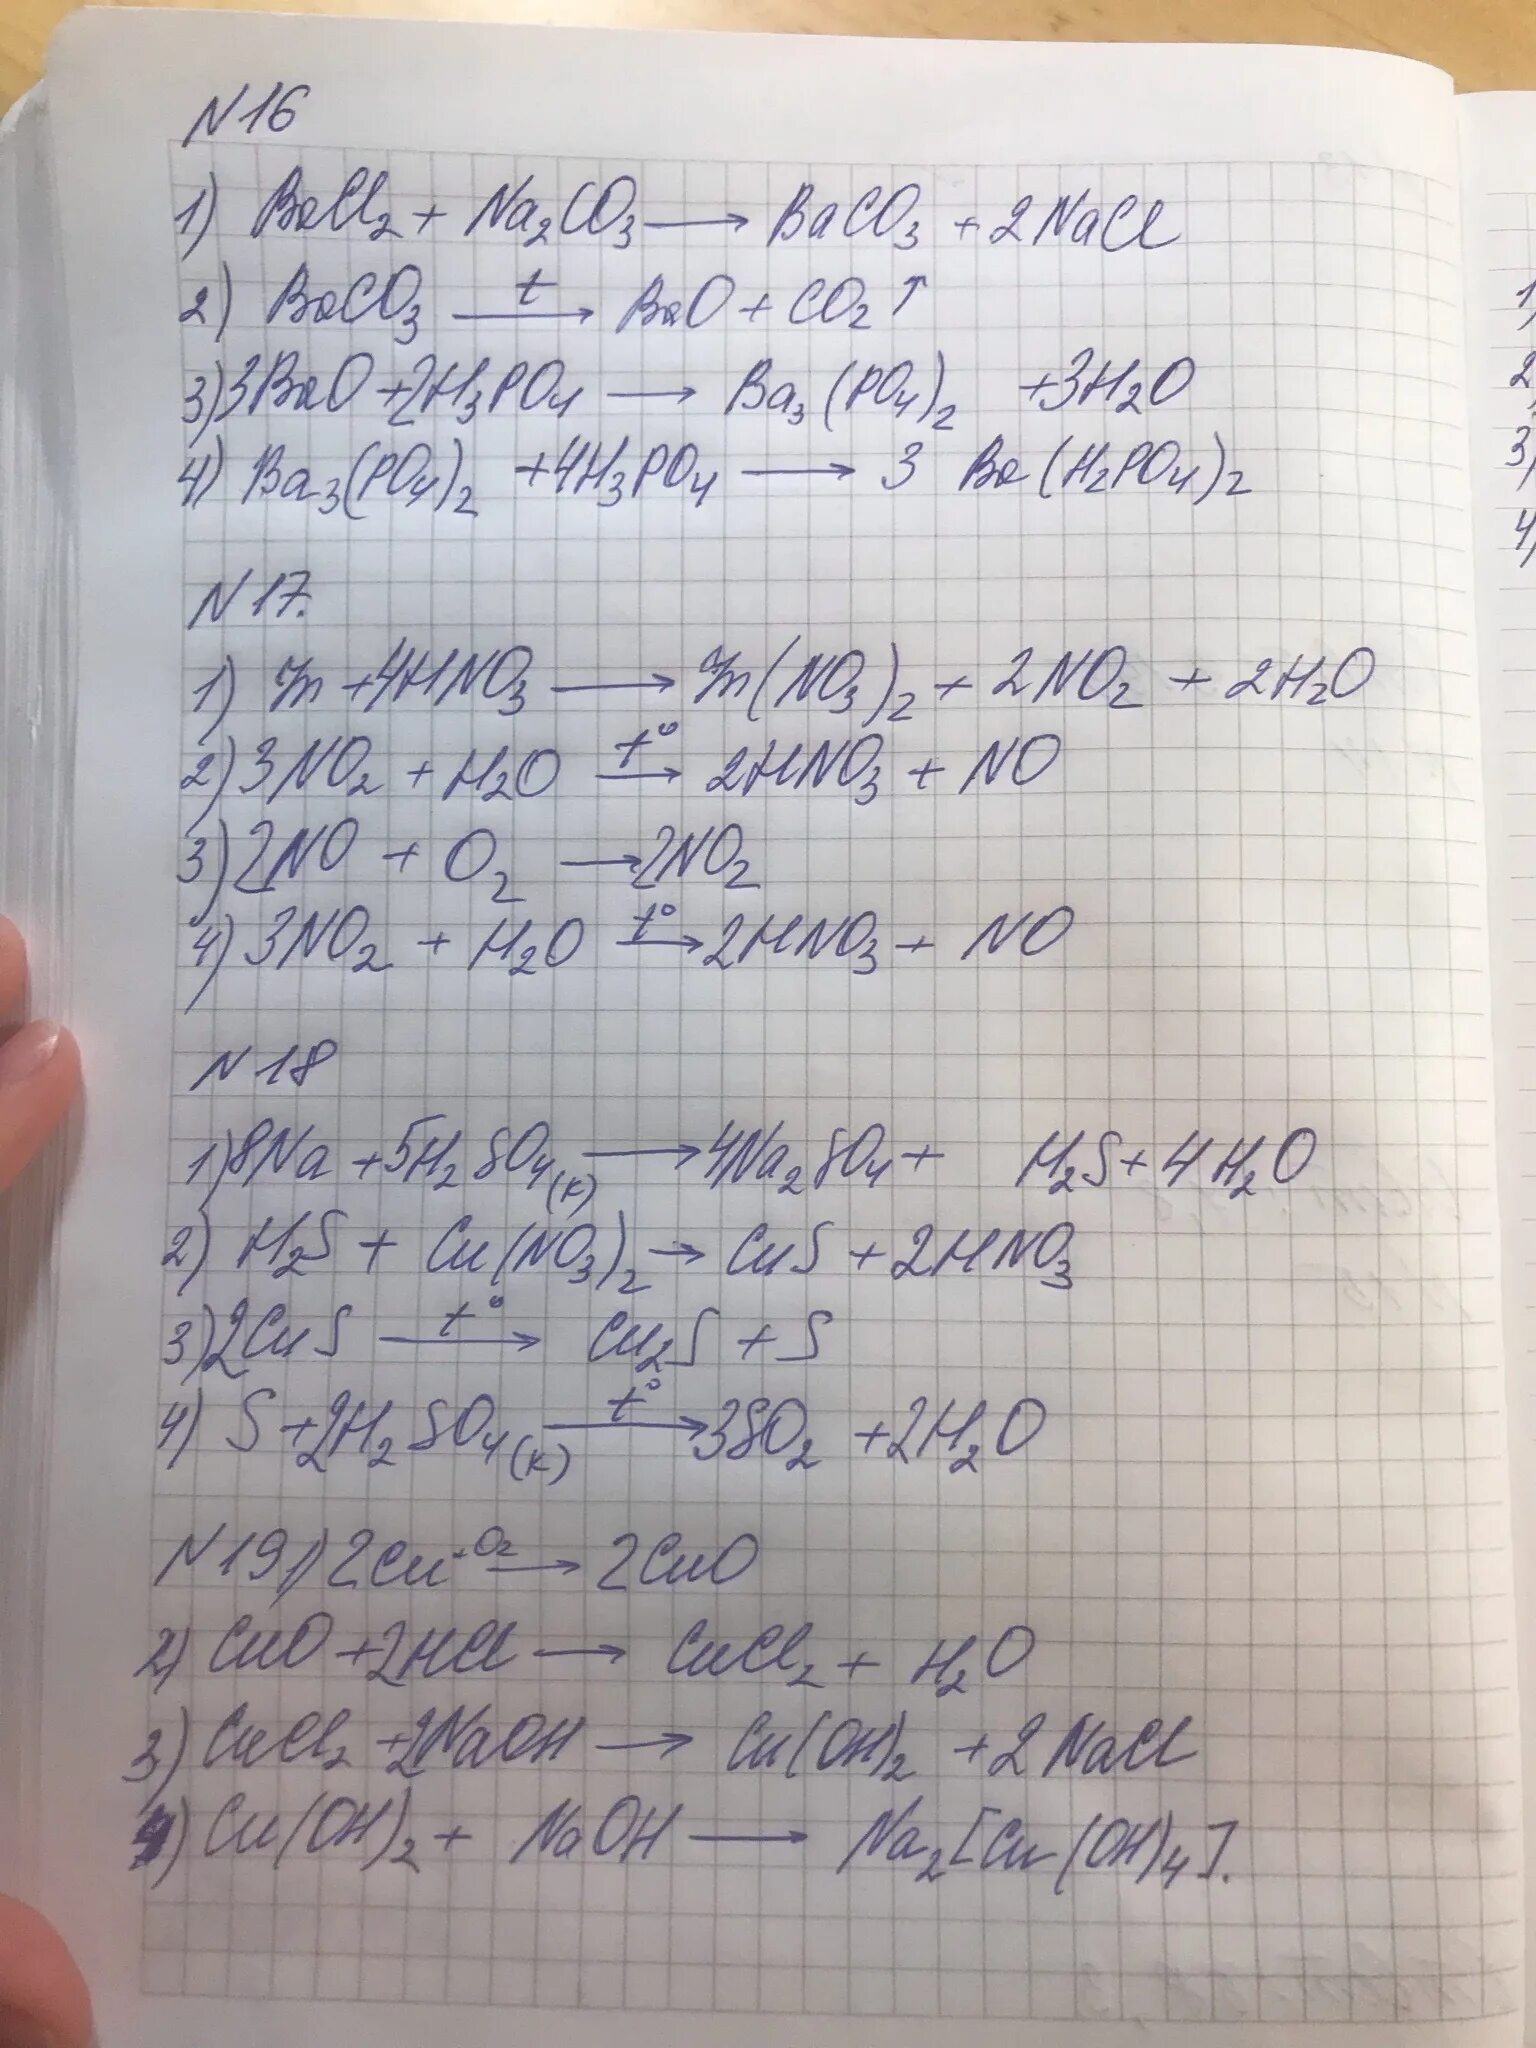 N16
1) BaCl2 + Na2CO3 → BaCO3 + 2NaCl
2) BaCO3 t→ BaO + CO2↑
3) 3BaO + 2H3PO4 → Ba3(PO4)2 + 3H2O
4) Ba3(PO4)2 + 4H3PO4 → 3 Ba(H2PO4)2
N17.
1) Zn + 4HNO3 → Zn(NO3)2 + 2NO2 + 2H2O
2) 3NO2 + H2O t°→ 2HNO3 + NO
3) 2NO + O2 → 2NO2
4) 3NO2 + H2O t°→ 2HNO3 + NO
N18
1) 8Na + 5H2SO4(к) → 4Na2SO4 + H2S + 4H2O
2) H2S + Cu(NO3)2 → CuS + 2HNO3
3) 2CuS t°→ Cu2S + S
4) S + 2H2SO4(к) t°→ 3SO2 + 2H2O
N19 1) 2Cu + O2 → 2CuO
2) CuO + 2HCl → CuCl2 + H2O
3) CuCl2 + 2NaOH → Cu(OH)2 + 2NaCl
4) Cu(OH)2 + NaOH → Na2[Cu(OH)4].
1)
2)
3)
4)